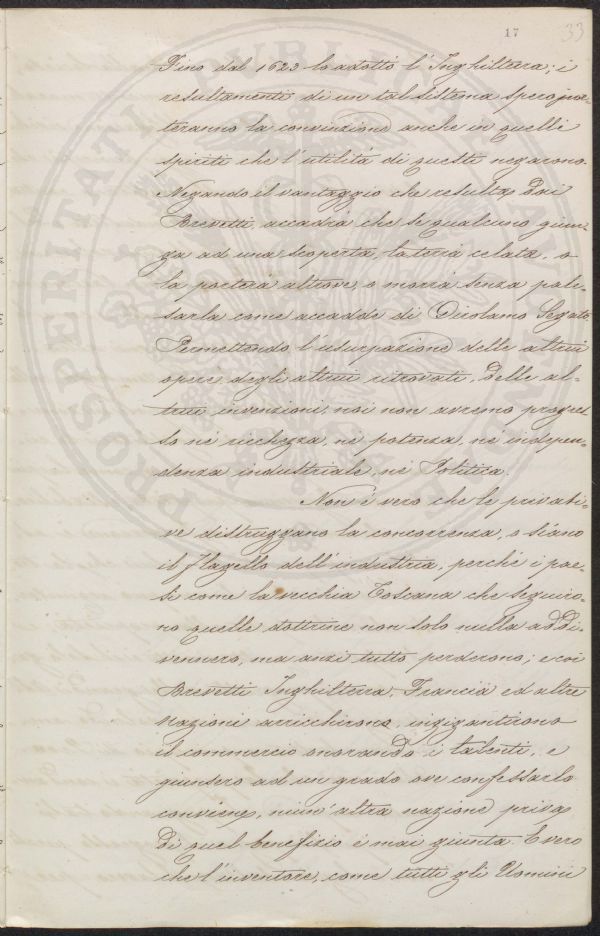 17
33
Fino dal 1623 lo adottò l'Inghilterra; i
resultamenti di un tal sistema spero por-
teranno la convinzione anche in quelli
spiriti che l'utilità di questi negarono.
Negando il vantaggio che resulta dai
Brevetti, accadrà che se qualcuno giun-
ga ad una scoperta, la terrà celata, o
la porterà altrove, o morrà senza pale-
sarla come accadde di Girolamo Segato
Permettendo l'usurpazione delle altrui
opere, degli altrui ritrovati, delle al-
trui invenzioni, noi non avremo progres-
so nè ricchezza, nè potenza, nè indipen-
denza industriale, nè Politica.
Non è vero che le privati-
ve distruggano la concorrenza, o siano
il flagello dell'industria, perchè i pae-
si come la vecchia Toscana che seguiro-
no quelle dottrine non solo nulla addi-
vennero, ma anzi tutto perderono; e coi
Brevetti Inghilterra, Francia ed altre
Nazioni arricchirono, ingigantirono
il commercio onorando i talenti, e
giunsero ad un grado ove confessarlo
conviene, niun'altra nazione priva
di quel benefizio è mai giunta. È vero
che l'inventore, come tutti gli Uomini
PROSPERITATI PUBLICAE